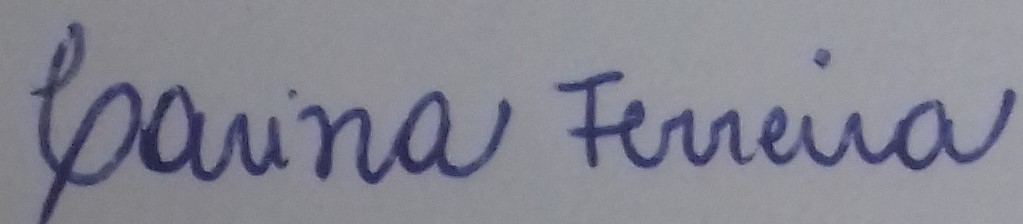 Carina Ferreira